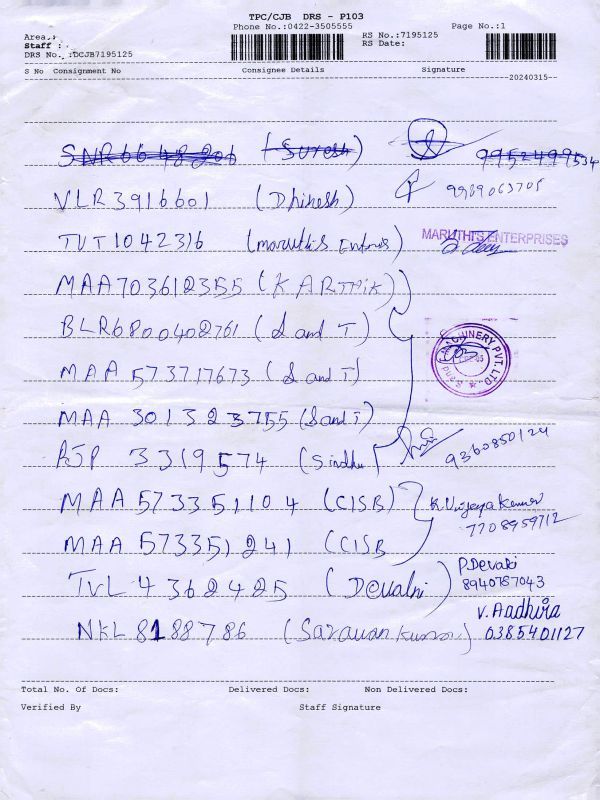 TPC/CJB DRS - P103
Phone No.:0422-3505555
Page No.:1
RS No.:7195125
RS Date:
Area.:
Staff :
DRS No. :DCJB7195125
S No Consignment No Consignee Details Signature
20240315
SNR6648206 (Suresh) 9952499534
VLR3916601 (Dhinesh) 9989063705
TVT1042316 (maruthis Entrs) MARUTHI'S ENTERPRISES
MAA703612355 (KARTHIK)
BLR6800402761 (S and T)
MAA 573717673 (S and T)
MACHINERY PVT. LTD.
MAA 301323755 (S and T)
RJP 3319574 (Sindhu 9360850124
MAA 573351104 (CISB) K.Vijeyakumar
7708959712
MAA 573351241 (CISB
TVL 4362425 (Devaki) P.Devaki
8940787043
NKL 8188786 (Saravan Kumar) V. Aadhira
6385401127
Total No. Of Docs: Delivered Docs: Non Delivered Docs:
Verified By Staff Signature